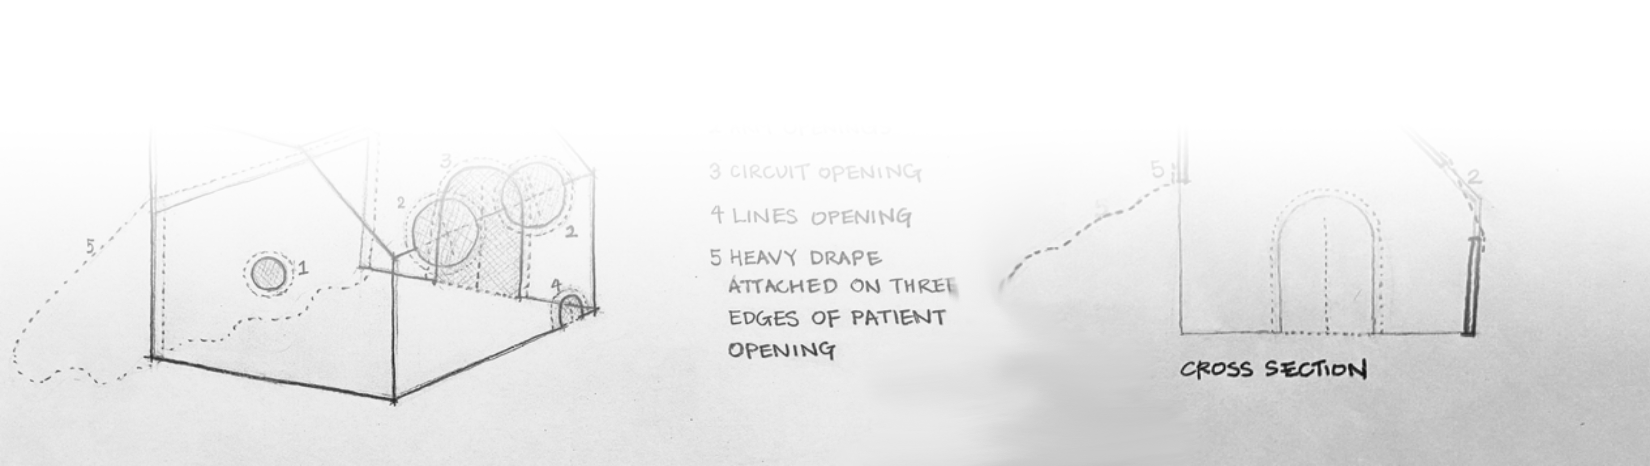 3
2
5
1
2
4
3 CIRCUIT OPENING
4 LINES OPENING
5 HEAVY DRAPE
ATTACHED ON THREE
EDGES OF PATIENT
OPENING
5
2
CROSS SECTION